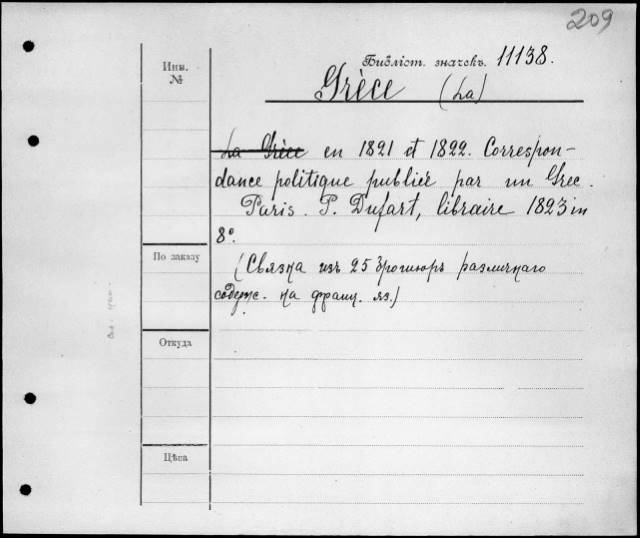 209
Инв.
№
Библіот. значекъ. 11138.
Grèce (La)
La Grèce en 1821 et 1822. Correspon-
dance politique publiée par un Grec.
Paris. P. Dufart, libraire 1823 in
8°.
По заказу
(Связка изъ 25 брошюръ различнаго
содерж. на франц. яз.)
Откуда
Цѣна